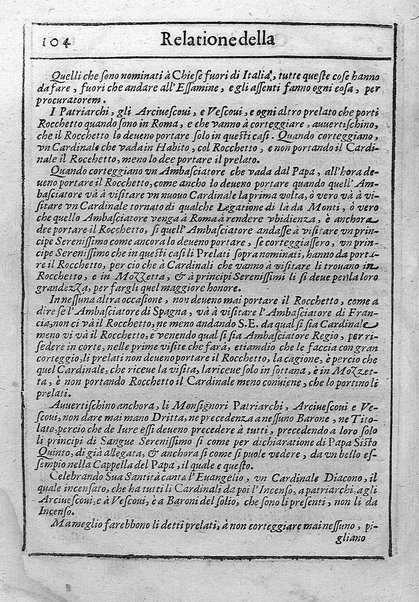 104
Relatione della
Quelli che sono nominati à Chiese fuori di Italia, tutte queste cose hanno
da fare, fuori che andare all'Essamine, e gli assenti fanno ogni cosa, per
procuratorem.
I Patriarchi, gli Arciuescoui, e Vescoui, e ogni altro prelato che porti
Rocchetto quando sono in Roma, e che vanno à corteggiare, auuertischino,
che il Rocchetto lo deueno portare solo in questi casi. Quando corteggiano,
vn Cardinale che vada in Habito, col Rocchetto, e non portando il Cardi-
nale il Rocchetto, meno lo dee portare il prelato.
Quando corteggiano vn Ambasciatore che vada dal Papa, all'hora de-
ueno portare il Rocchetto, come ancho lo deueno portare quando quell'Am-
basciatore và à visitare vn nuouo Cardinale la prima volta, ò vero và à vi-
sitare vn Cardinale tornato di qualche Legatione di là da Monti, ò vero
che quello Ambasciatore venga à Roma à rendere vbidienza, è anchora
dee portare il Rocchetto, si quell'Ambasciatore andasse à visitare vn prin-
cipe Serenissimo come ancora lo deueno portare, se corteggiassero, vn prin-
cipe Serenissimo che in questi casi li Prelati sopra nominati, hanno da porta-
re il Rocchetto, per ciò che à Cardinali che vanno à visitare li trouano in
Rocchetto, e in Mozzetta, & à principi Serenissimi li si deue per la loro
grandezza, per fargli quel maggiore honore.
In nessuna altra occasione, non deueno mai portare il Rocchetto, come a
dire se l'Ambasciatore di Spagna, và à visitare l'Ambasciatore di Fran-
cia, non ci và il Rocchetto, ne meno andando S.E. da qual si sia Cardinale
meno vi và il Rocchetto, e venendo qual si sia Ambasciatore Regio, per ri-
sedere in corte, nelle prime visite che farà, etiamdio che le faccia con gran
corteggio, li prelati non deueno portare il Rocchetto, la cagione, è percio che
quel Cardinale, che riceue la visita, la riceue solo in sottana, è in Mozzet-
ta, è non portando Rocchetto il Cardinale meno conuiene, che lo portino li
prelati.
Auuertischino anchora, li Monsignori Patriarchi, Arciuescoui e Ve-
scoui, non dare mai mano Dritta, ne precedenza a nessuno Barone, ne Tito-
lato, percio che de Iure essi deueno precedere à tutti, precedendo a loro solo
li principi di Sangue Serenissimo si come per dichiaratione di Papa Sisto
Quinto, di già allegata, & anchora si come si puole vedere, da vn bello es-
sempio nella Cappella del Papa, il quale e questo.
Celebrando Sua Santità canta l'Euangelio, vn Cardinale Diacono, il
quale incensato, che ha tutti li Cardinali da poi l'Incenso, a patriarchi, a gli
Arciuescoui, e à Vescoui, è a Baroni del solio, che sono li presenti, non li dà
Incenso.
Ma meglio farebbono li detti prelati, à non corteggiare mai nessuno, pi-
gliano